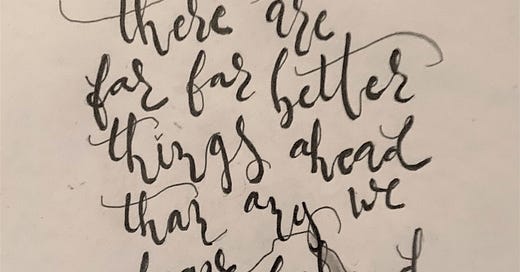 there are
far far better
things ahead
than any we